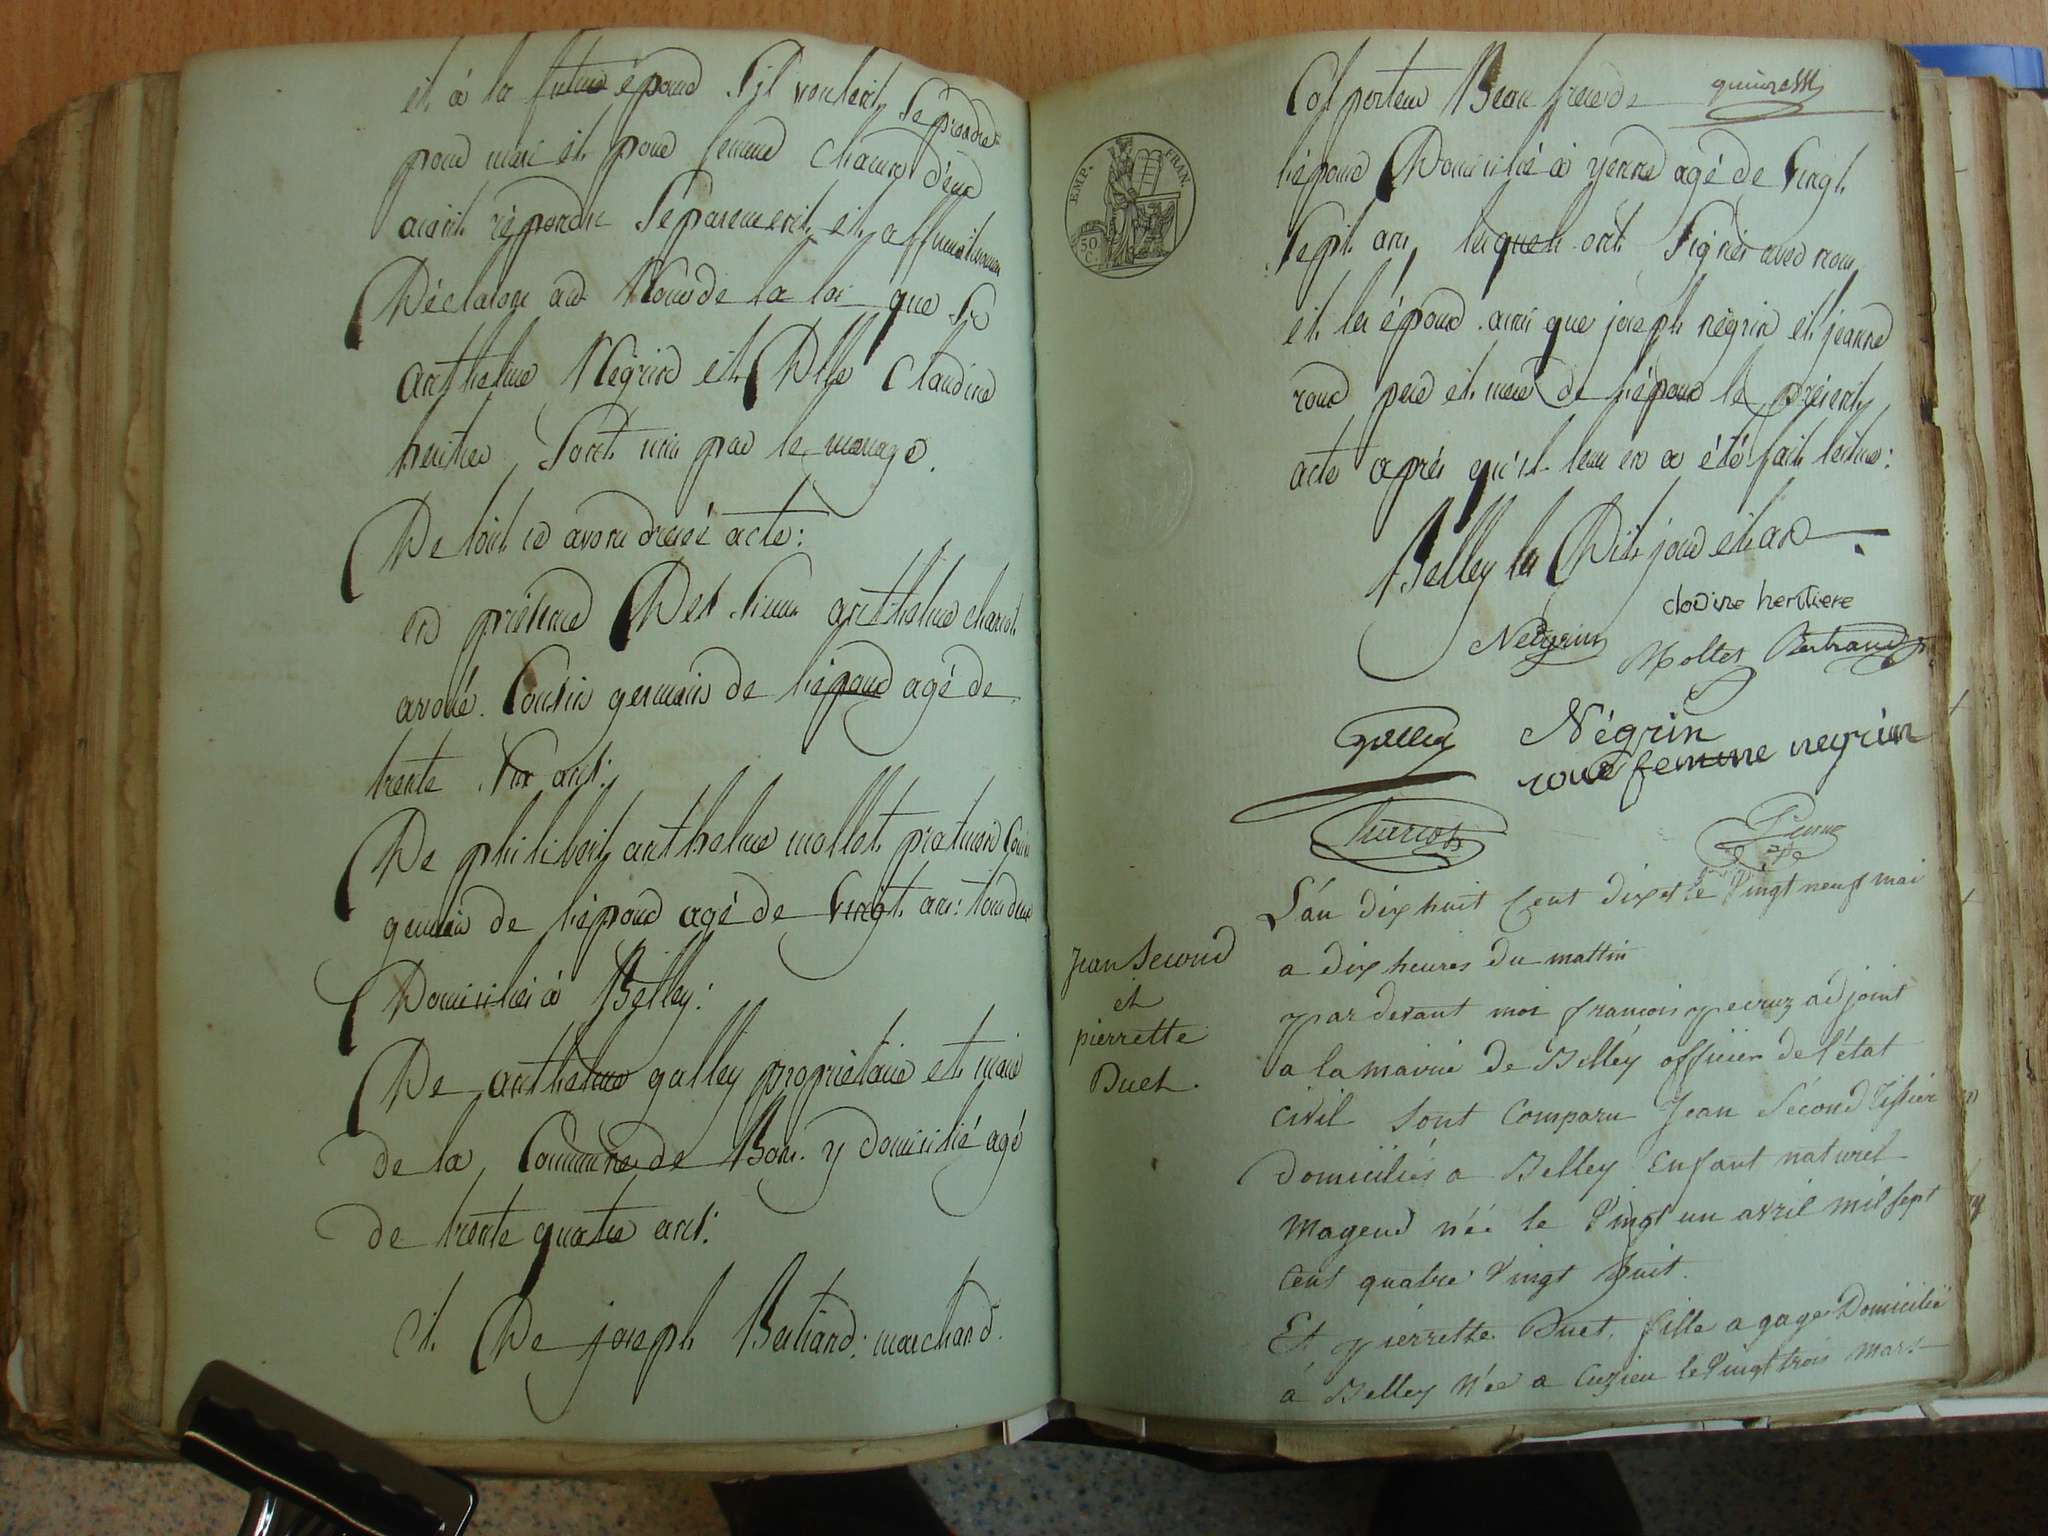 et à la future épouse s'il veulent se prendre
pour mari et pour femme chacun d'eux
aiant répondu séparement et affirmativemen
Déclarons au Nom de la loi que sr
anthelme Négrin et Dlle Claudine
heritier sont unis par le mariage.
De tout ce avons dressé acte:
en présence Des sieurs anthelme charcot
avoué. Cousin germain de l'épouse agé de
trente six ans:
De philibert anthelme mollet praticien Cousin
germain de l'épouse agé de vingt ans: tous deux
Domiciliés à Belley:
De anthelme galley propriétaire et maire
de la Commune de Bons. y domicilié agé
de trente quatre ans:
Et De joseph Bertrand: marchand.
Colporteur Beau frere de
l'épouse Domicilié à yenne agé de vingt
sept ans, lesquels ont signés avec nous
et les époux. ainsi que joseph négrin et jeanne
roux pere et mere de l'époux le présent
acte après qu'il leur en a été fait lecture:
Belley les Dits jour et an
clodine heritiere
Negrin Mollet Bertrand
galley Négrin
roux femme negrin
Charcot
EMP. FRAN.
50 C.
Jean Second
et
pierrette
Duet.
L'an dix huit Cent dix et le vingt neuf mai
a dix heures du mattin
par devant moi françois pecruz adjoint
a la mairie de Belley officier de l'état
civil sont Comparu Jean Sécond Tissier
domiciliés a Belley Enfant naturel
Mageur née le vingt un avril mil sept
Cent quatre vingt huit.
Et pierrette Duet, fille a gage Domicilié
à Belley née a Cuzieu le vingt trois mars